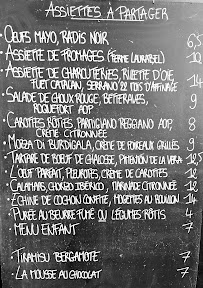 ASSIETTES À PARTAGER
OEUFS MAYO, RADIS NOIR 6,5
ASSIETTE DE FROMAGES (FERME LAUNAYREL) 10
ASSIETTE DE CHARCUTERIES, RILLETTE D'OIE,
FUET CATALAN, SERRANO 22 MOIS D'AFFINAGE 14
SALADE DE CHOUX ROUGE, BETTERAVES,
ROQUEFORT AOP 9
CAROTTES RÔTIES PARMIGIANO REGGIANO AOP,
CRÈME CITRONNÉE 8
MOZZA DI BURDIGALA, CRÈME DE POIREAUX GRILLÉS 9
TARTARE DE BOEUF DE CHALOSSE, PIMENTÓN DE LA VERA 12,5
L'OEUF PARFAIT, PLEUROTES, CRÈME DE CAROTTES 12
CALAMARS, CHORIZO IBÉRICO, MARINADE CITRONNÉE 12
ÉCHINE DE COCHON CONFITE, MOGETTES AU BOUILLON 14
PURÉE AU BEURRE FUMÉ OU LÉGUMES RÔTIS 4
MENU ENFANT 7
TIRAMISU BERGAMOTE 7
LA MOUSSE AU CHOCOLAT 7